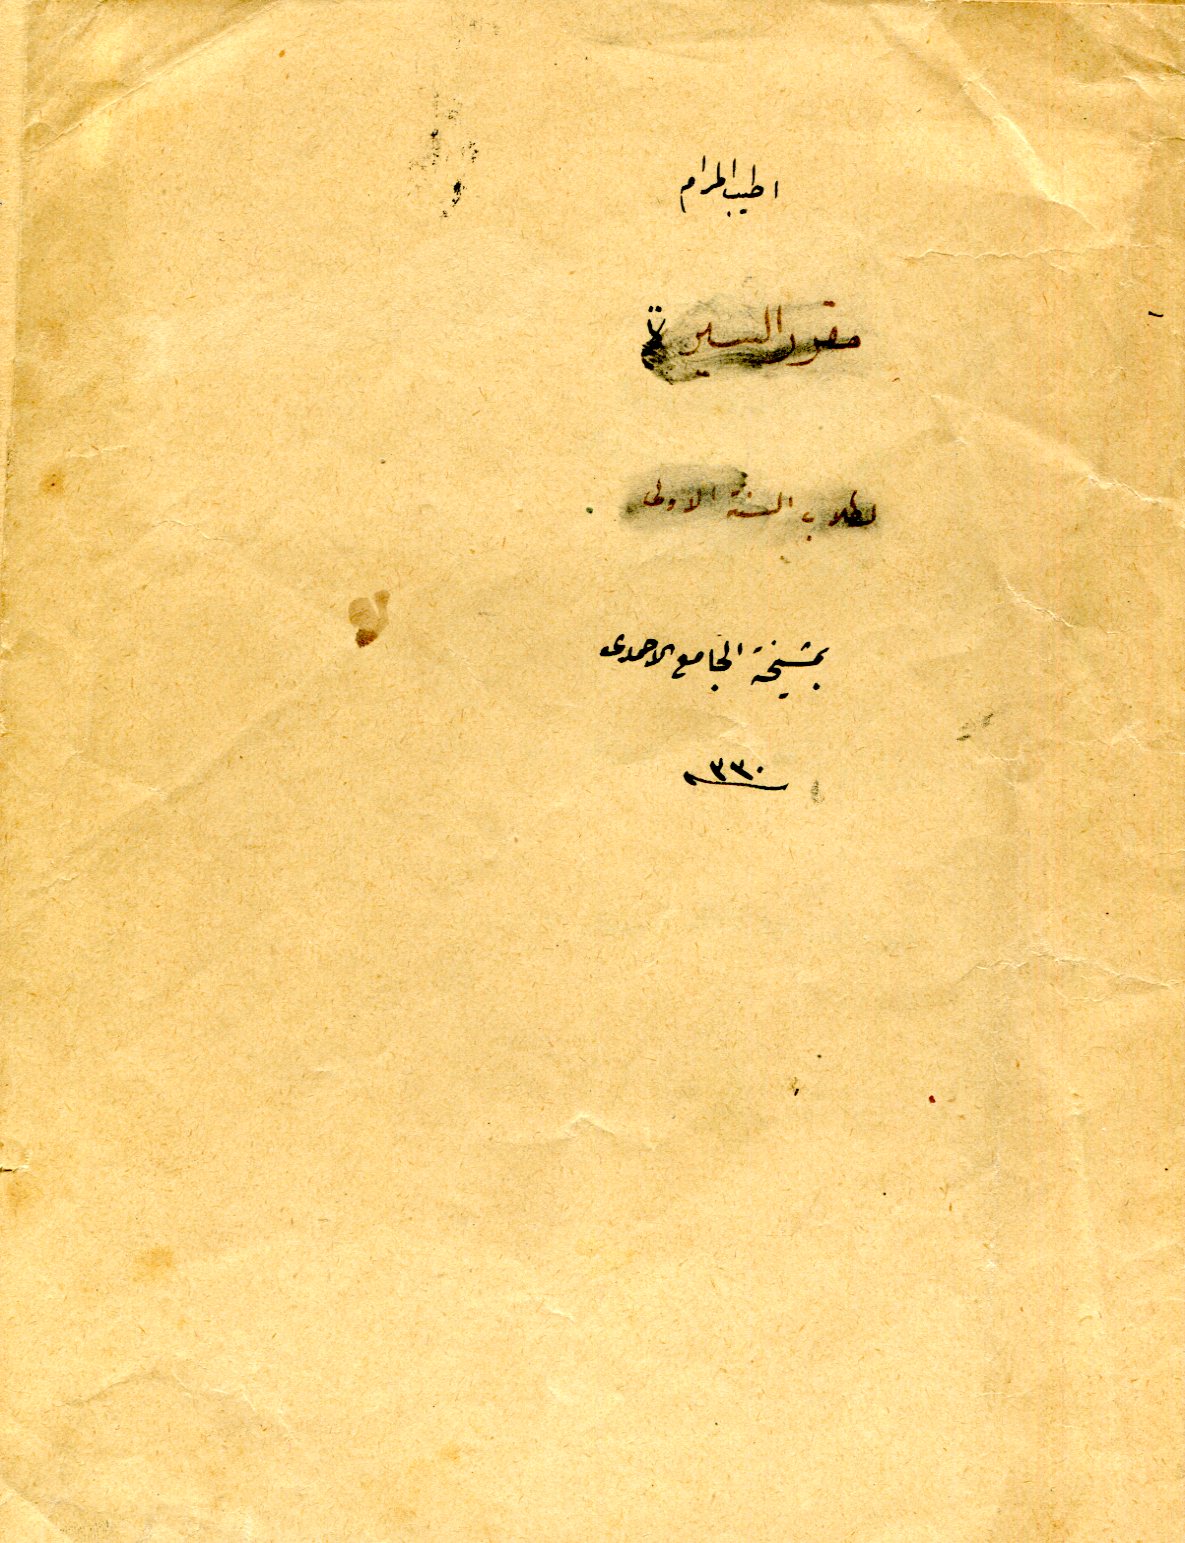 اطيب المرام
مقرر السيرة
لطلاب السنة الاولى
بمشيخة الجامع الاحمدى
٣٣٠